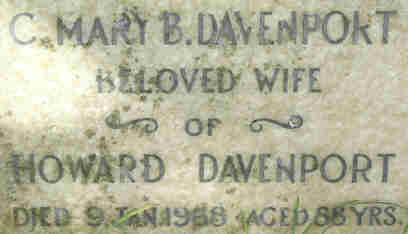 C. MARY B. DAVENPORT
BELOVED WIFE
OF
HOWARD DAVENPORT
DIED 9. JAN. 1968 AGED 88 YRS.